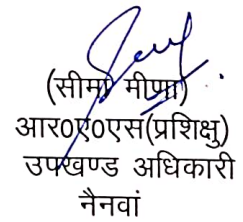 (सीमा मीणा)
आर०ए०एस(प्रशिक्षु)
उपखण्ड अधिकारी
नैनवां